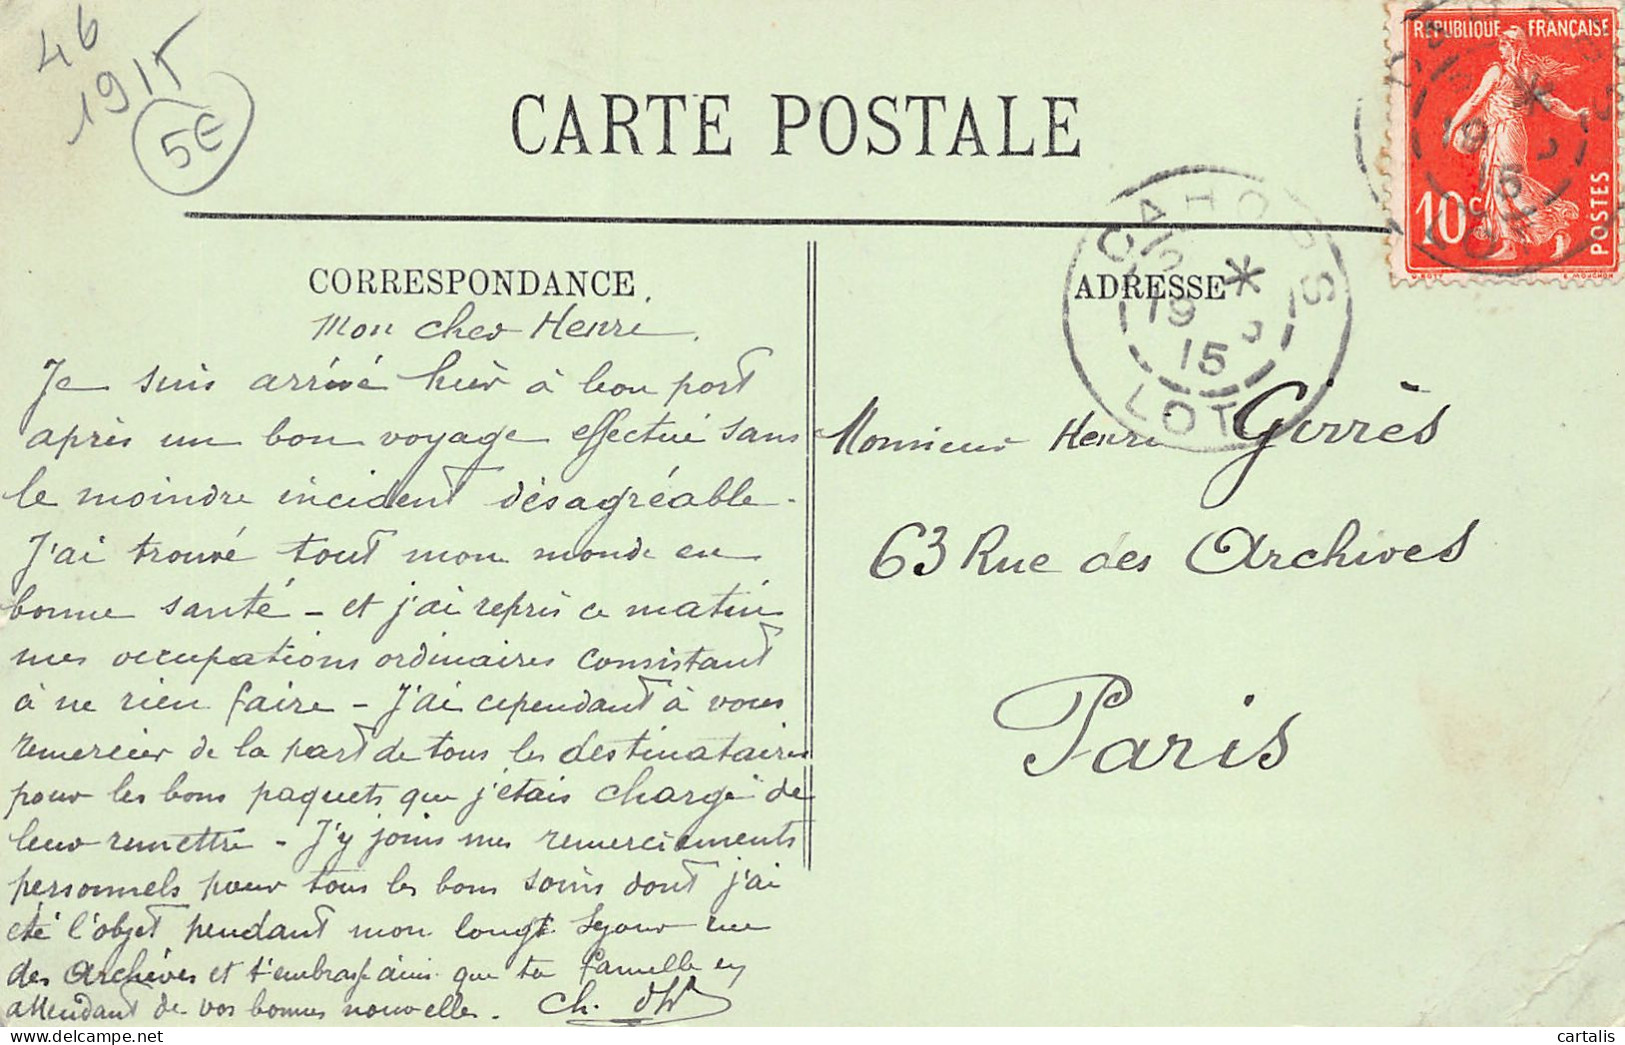 46
1915
5€
CARTE POSTALE
REPUBLIQUE FRANÇAISE
10c
POSTES
E. MOUCHON
CAHORS
12 *
19 5
15
LOT
CORRESPONDANCE
ADRESSE
Mon cher Henri
Je suis arrivé hier à bon port
après un bon voyage effectué sans
le moindre incident désagréable -
J'ai trouvé tout mon monde en
bonne santé - et j'ai repris ce matin
mes occupations ordinaires consistant
à ne rien faire - J'ai cependant à vous
remercier de la part de tous les destinataires
pour les bons paquets que j'étais chargé de
leur remettre - J'y joins mes remerciements
personnels pour tous les bons soins dont j'ai
été l'objet pendant mon long séjour rue
des Archives et t'embrasse ainsi que ta famille en
attendant de vos bonnes nouvelles. Ch.
Monsieur Henri Girrès
63 Rue des Archives
Paris
cartalis